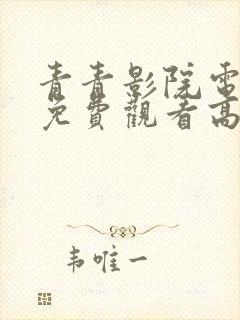 青青影院電
免費觀看高
韦唯一